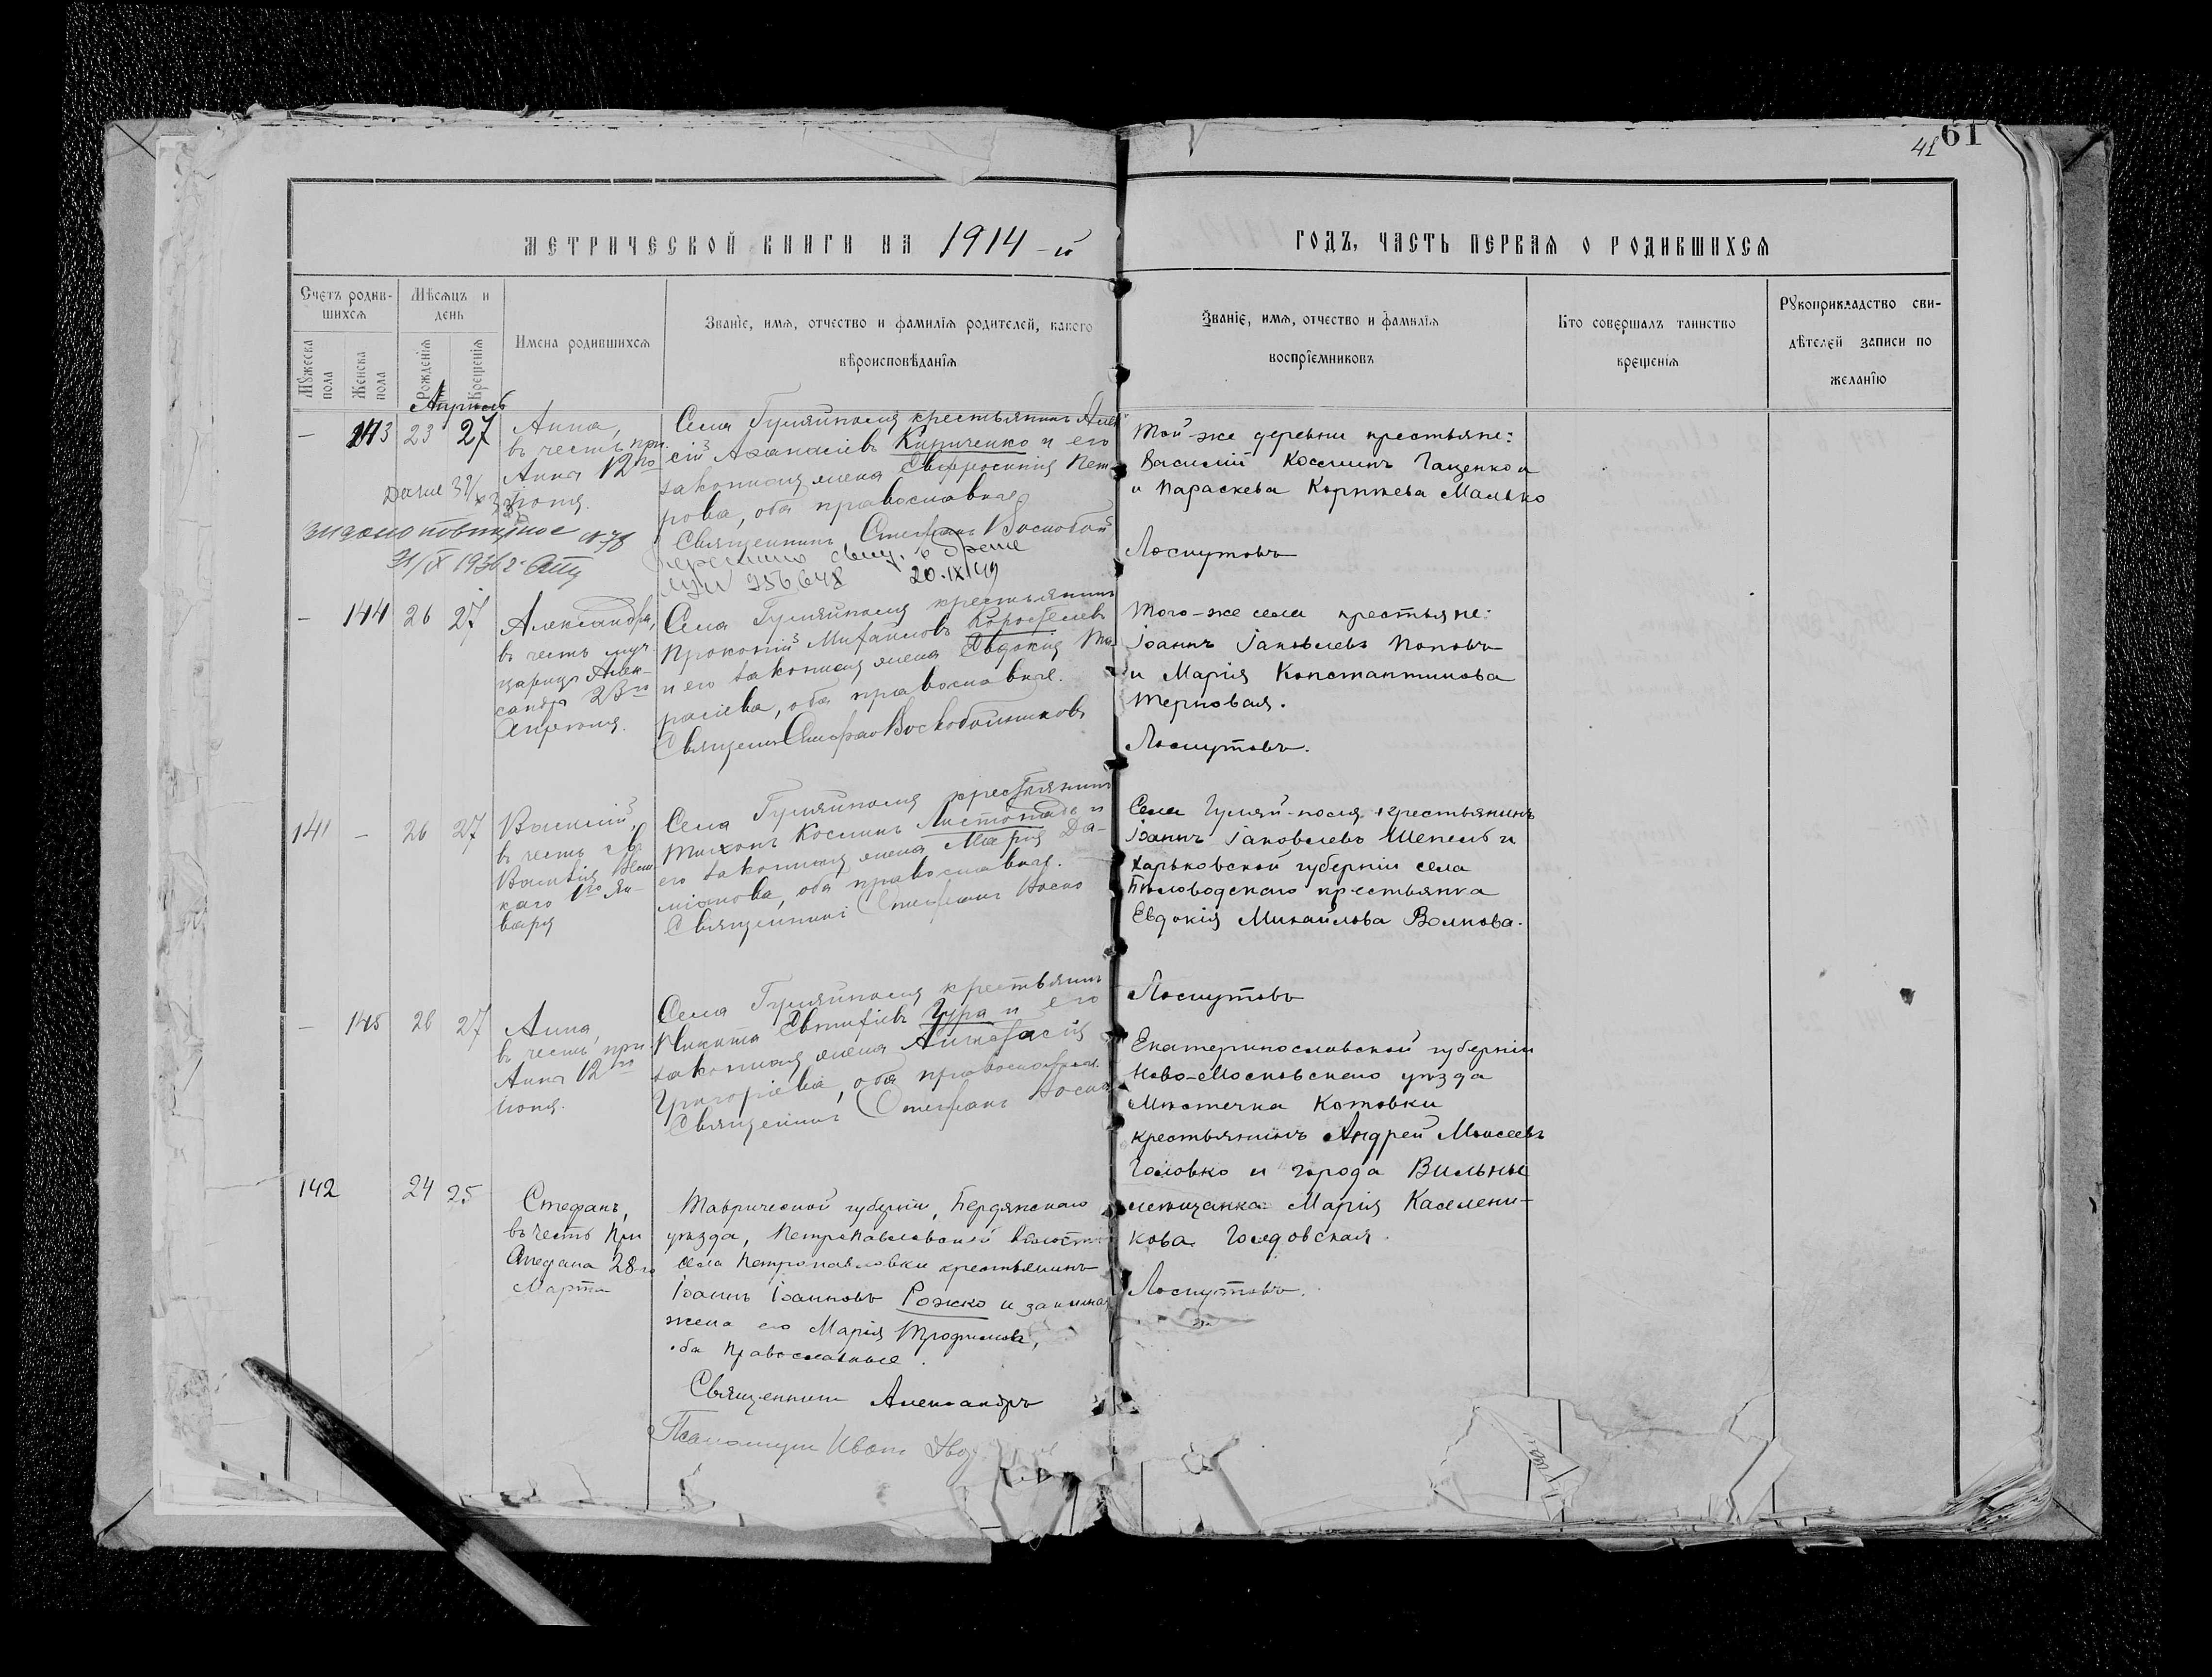 61
41
МЕТРИЧЕСКОЙ КНИГИ НА 1914-й
ГОДЪ, ЧАСТЬ ПЕРВАЯ О РОДИВШИХСЯ
Счетъ родив-
шихся
Мужеска пола
Женска пола
Мѣсяцъ и
день
Рожденія
Крещенія
Имена родившихся
Званіе, имя, отчество и фамилія родителей, какого
вѣроисповѣданія
Званіе, имя, отчество и фамилія
воспріемниковъ
Кто совершалъ таинство
крещенія
Рукоприкладство сви-
дѣтелей записи по
желанію
Апрель
— 143 23 27
Анна,
въ честь пр.
Анны 12го
Іюня.
31/IX 1936 г.
Села Гуляйполя крестьянинъ Алек
сій Аѳанасіевъ Кириченко и его
законная жена Евфросинія Пет-
рова, оба православные
Священникъ Стефанъ Воскобой
20.IX.49
Той-же деревни крестьяне:
Василій Косминъ Гаценко и
и Параскева Корнѣева Малько
Лоскутовъ
— 144 26 27
Александра,
въ честь муч.
царицы Алек-
сандры 23го
Апреля.
Села Гуляйполя крестьянинъ
Прокопій Михайловъ Коростелевъ
и его законная жена Евдокия Та-
расіева, оба православные.
Священ. Стефан Воскобойниковъ
Того-же села крестьяне:
Іоаннъ Іаковлевъ Поповъ
и Марія Константинова
Терновая.
Лоскутовъ.
141 — 26 27
Василій,
въ честь св.
Василія Вели
каго 1го Ян-
варя
Села Гуляйполя крестьянинъ
Тихонъ Косминъ Листопадъ и
его законная жена Марія Да-
міанова, оба православные.
Священникъ Стефанъ Воско
Села Гуляй-поля крестьянинъ
Іоаннъ Іаковлевъ Шепель и
Харьковской губерніи села
Бѣловодскаго крестьянка
Евдокія Михайлова Волкова.
Лоскутовъ
— 145 26 27
Анна,
въ честь пр.
Анны 12го
Іюня.
Села Гуляйполя крестьянинъ
Никита Евтифіевъ Гура и его
законная жена Анастасія
Григоріева, оба православные.
Священникъ Стефанъ Воско
Екатеринославской губерніи
Ново-Московскаго уѣзда
Мѣстечка Котовки
крестьянинъ Андрей Моисеевъ
Головко и города Вильны
мѣщанка Марія Каслени-
кова
Лоскутовъ.
142 24 25
Стефанъ,
въ честь Пр.
Стефана 28го
Марта
Таврической губерніи, Бердянскаго
уѣзда, Петропавловской волости
села Петропавловки крестьянинъ
Іоаннъ Іоанновъ Рожко и законная
жена его Марія Трофимова,
оба Православные.
Священникъ Александръ
Псаломщик Иванъ